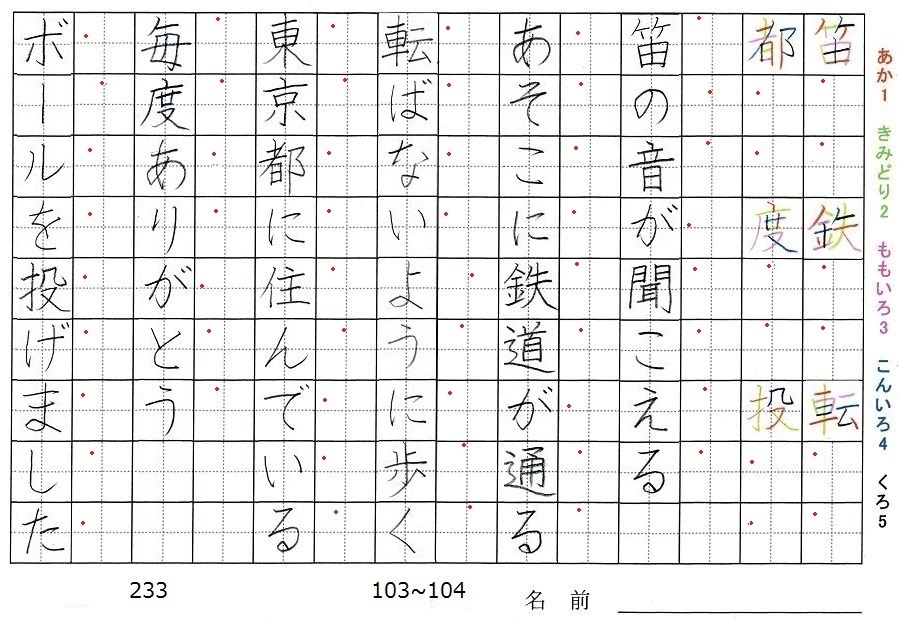 あか1 きみどり2 ももいろ3 こんいろ4 くろ5
笛 鉄 転
都 度 投
笛の音が聞こえる
あそこに鉄道が通る
転ばないように歩く
東京都に住んでいる
毎度ありがとう
ボールを投げました
233 103~104 名前